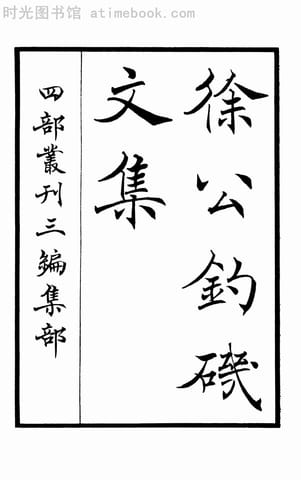 时光图书馆 atimebook.com
徐公釣磯
文集
四部叢刊三編集部